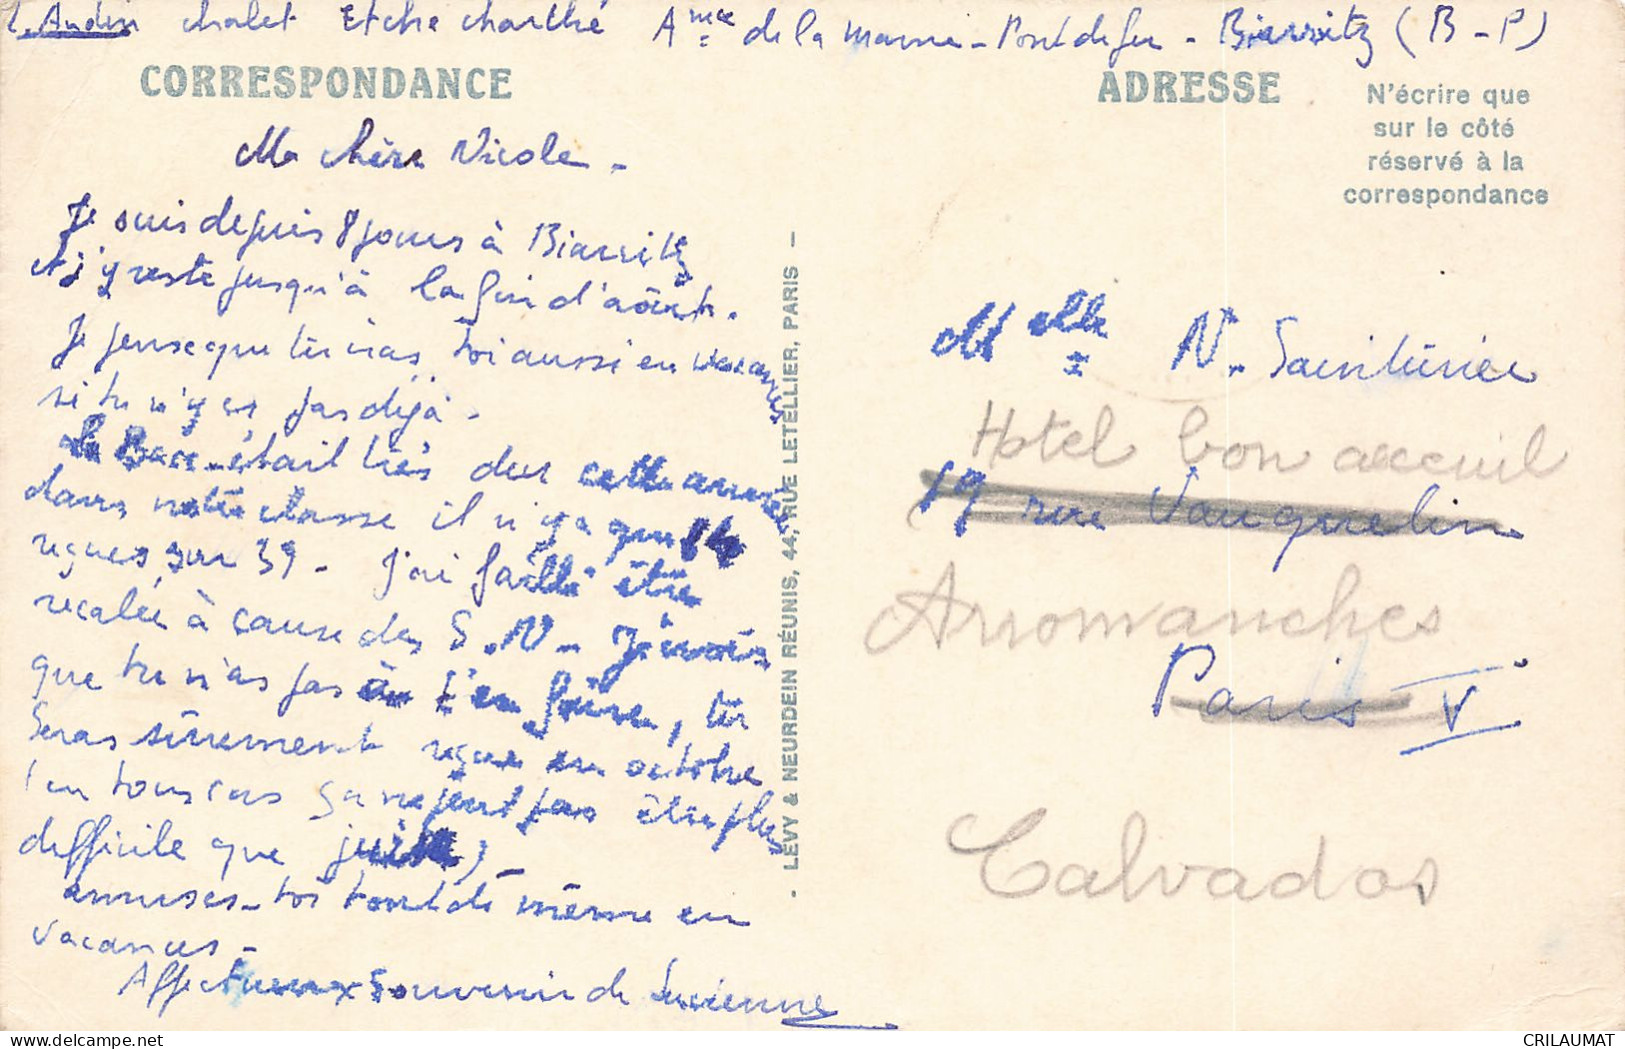 L. Audin chalet Etche charthé Ame de la marne - Pont de fer - Biarritz (B-P)
CORRESPONDANCE
Ma chère Nicole -
Je suis depuis 8 jours à Biarritz
et j'y reste jusqu'à la fin d'août.
Je pense que tu iras toi aussi en vacances
si tu n'y es pas déjà -
Le Bac était très dur cette année
dans notre classe il n'y a que 14
reçues sur 39 - J'ai failli être
recalée à cause des S.N -
que tu n'as pas à t'en faire, tu
seras sûrement reçue en octobre
en tous cas ça ne peut pas être plus
difficile que juin,
amuses-toi tout de même en
vacances -
Affectueux souvenir de Lucienne
- LEVY & NEURDEIN RÉUNIS, 44, RUE LETELLIER, PARIS -
ADRESSE
N'écrire que
sur le côté
réservé à la
correspondance
Melle N. Sainturier
Hotel bon acceuil
19 rue Vauquelin
Arromanches
Paris V
Calvados
CRILAUMAT